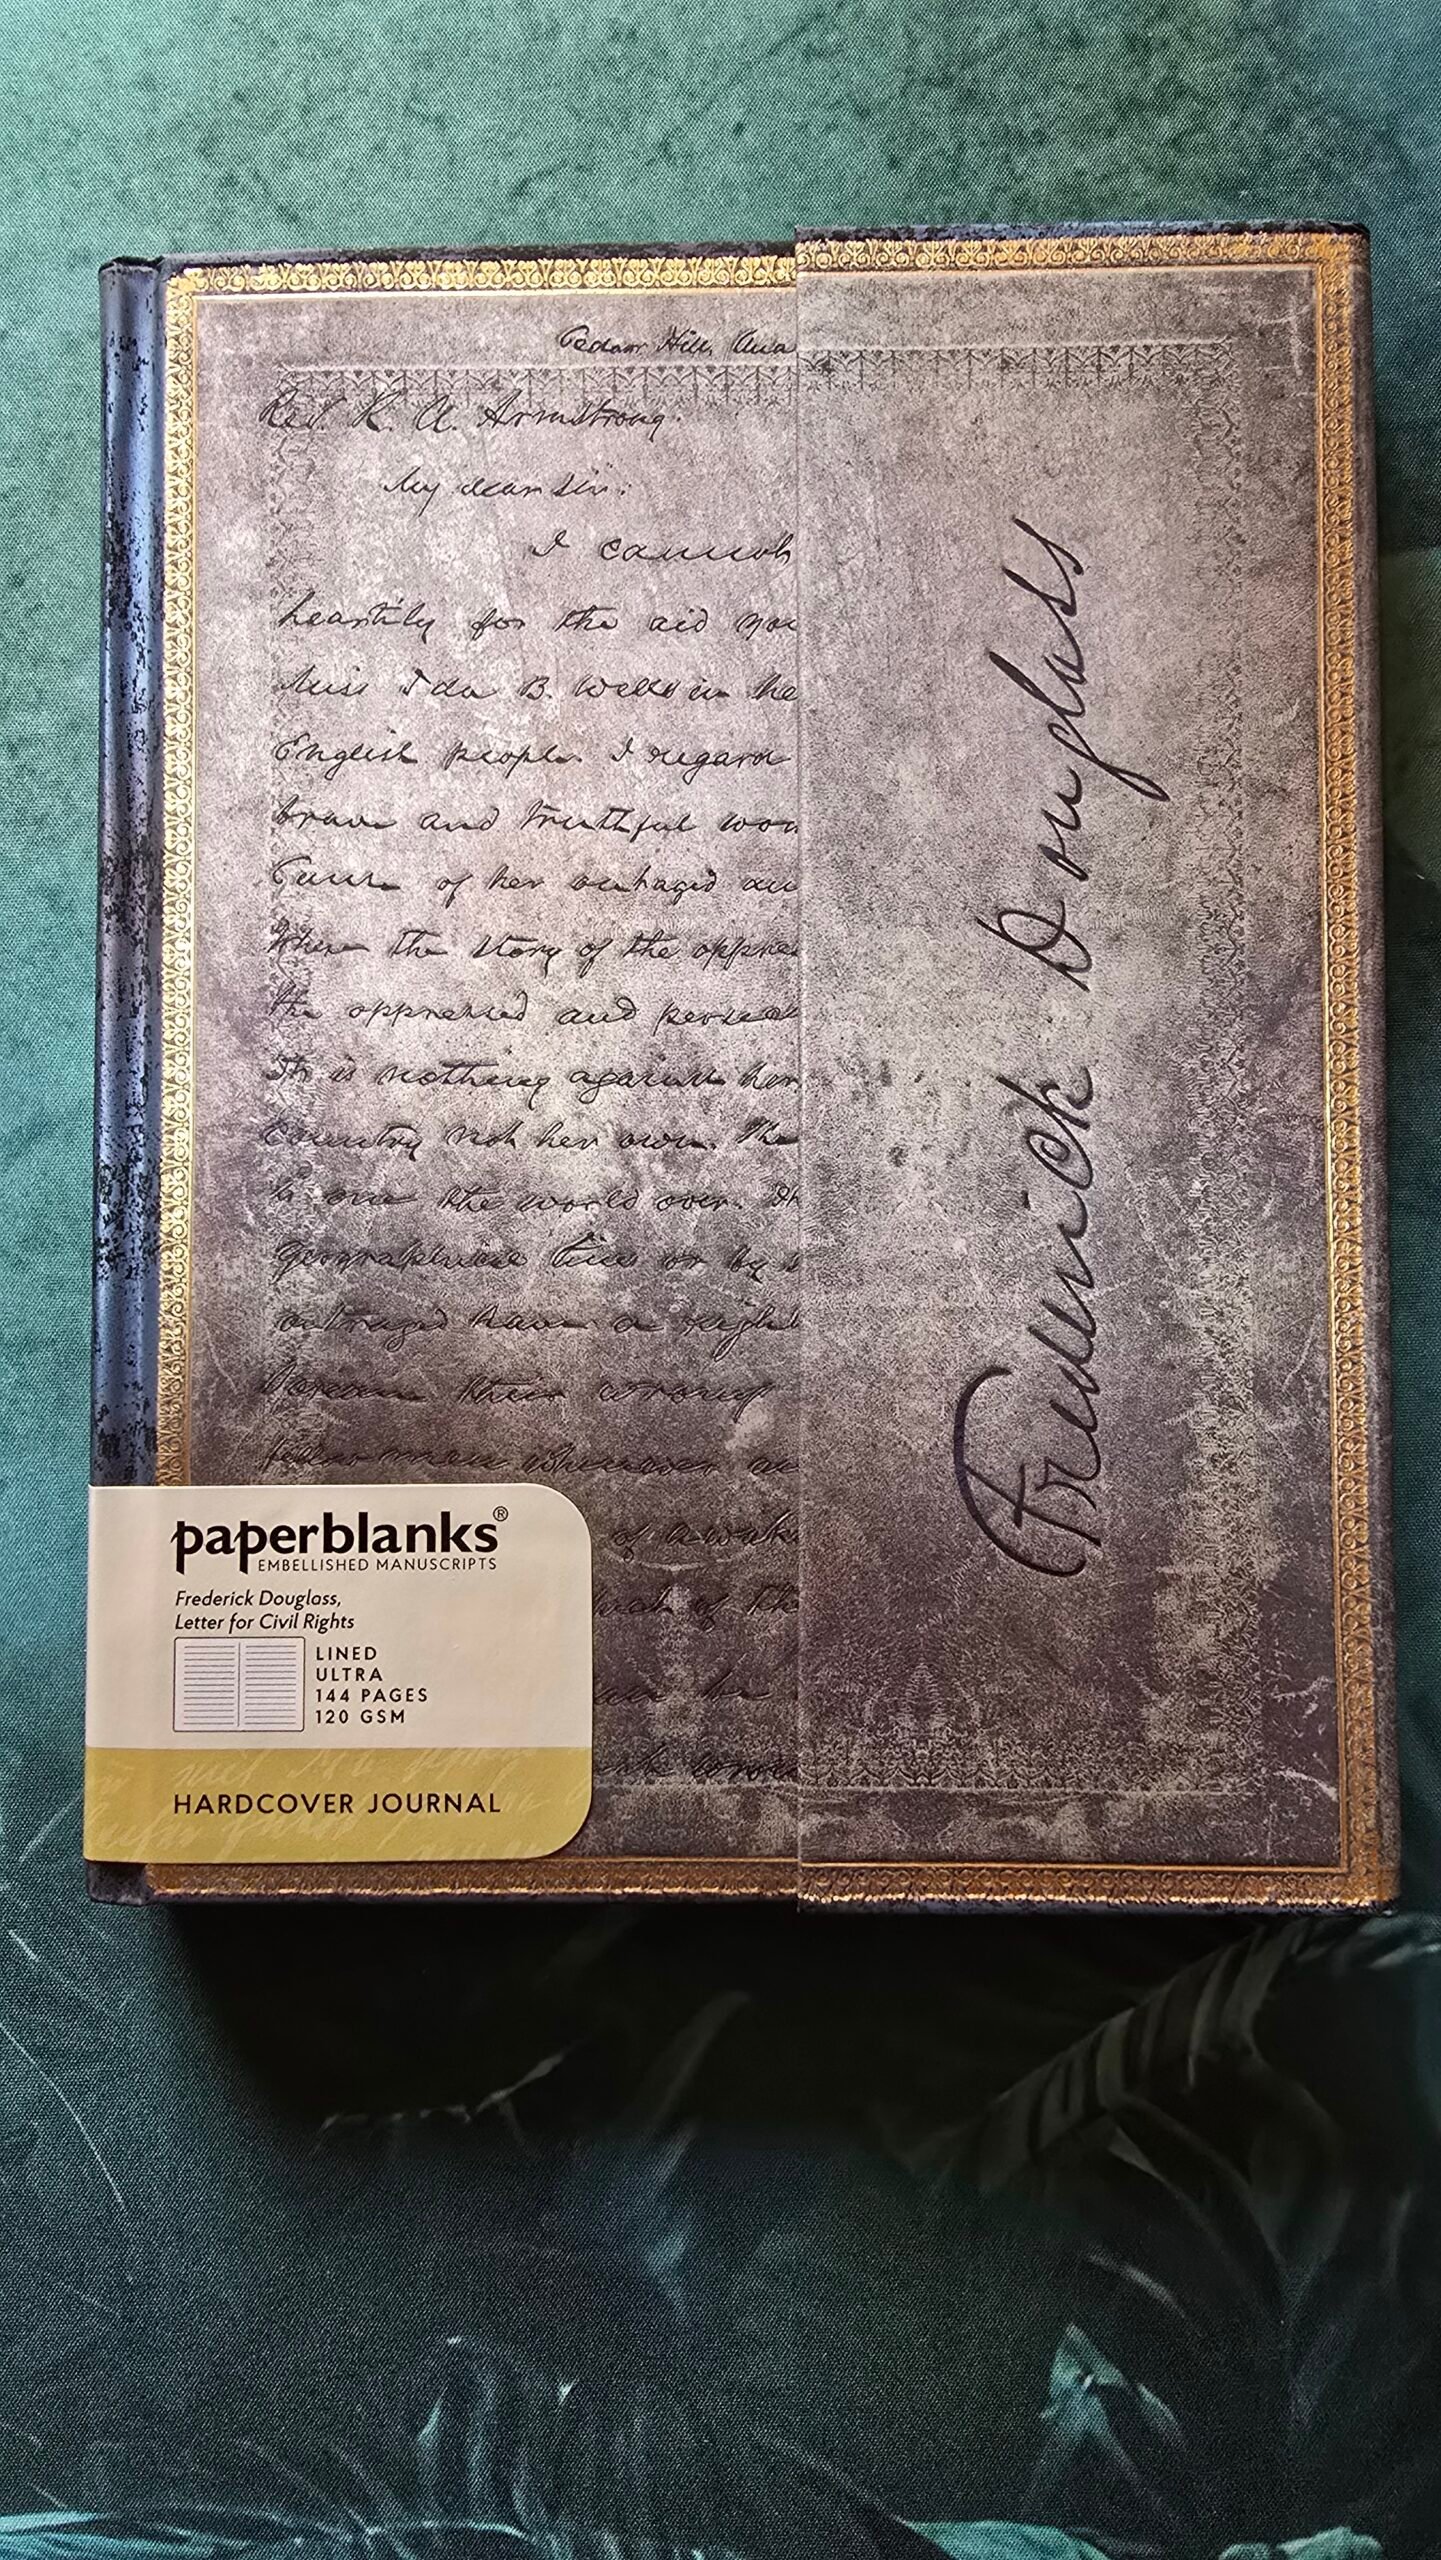 Cedar Hill, Ana
Rev. R. A. Armstrong.
My dear sir:
I cannot
heartily for the aid you
Miss Ida B. Wells in he
English people. I regard
brave and truthful wom
Cause of her outraged an
Where the story of the oppre
the oppressed and persecu
It is nothing against her
Country not her own. The
is one the world over. Th
geographical lines or by
outraged have a right
their wrongs
fellow men whenever an
of awake
of th
Frederick Douglass
paperblanks®
EMBELLISHED MANUSCRIPTS
Frederick Douglass,
Letter for Civil Rights
LINED
ULTRA
144 PAGES
120 GSM
HARDCOVER JOURNAL